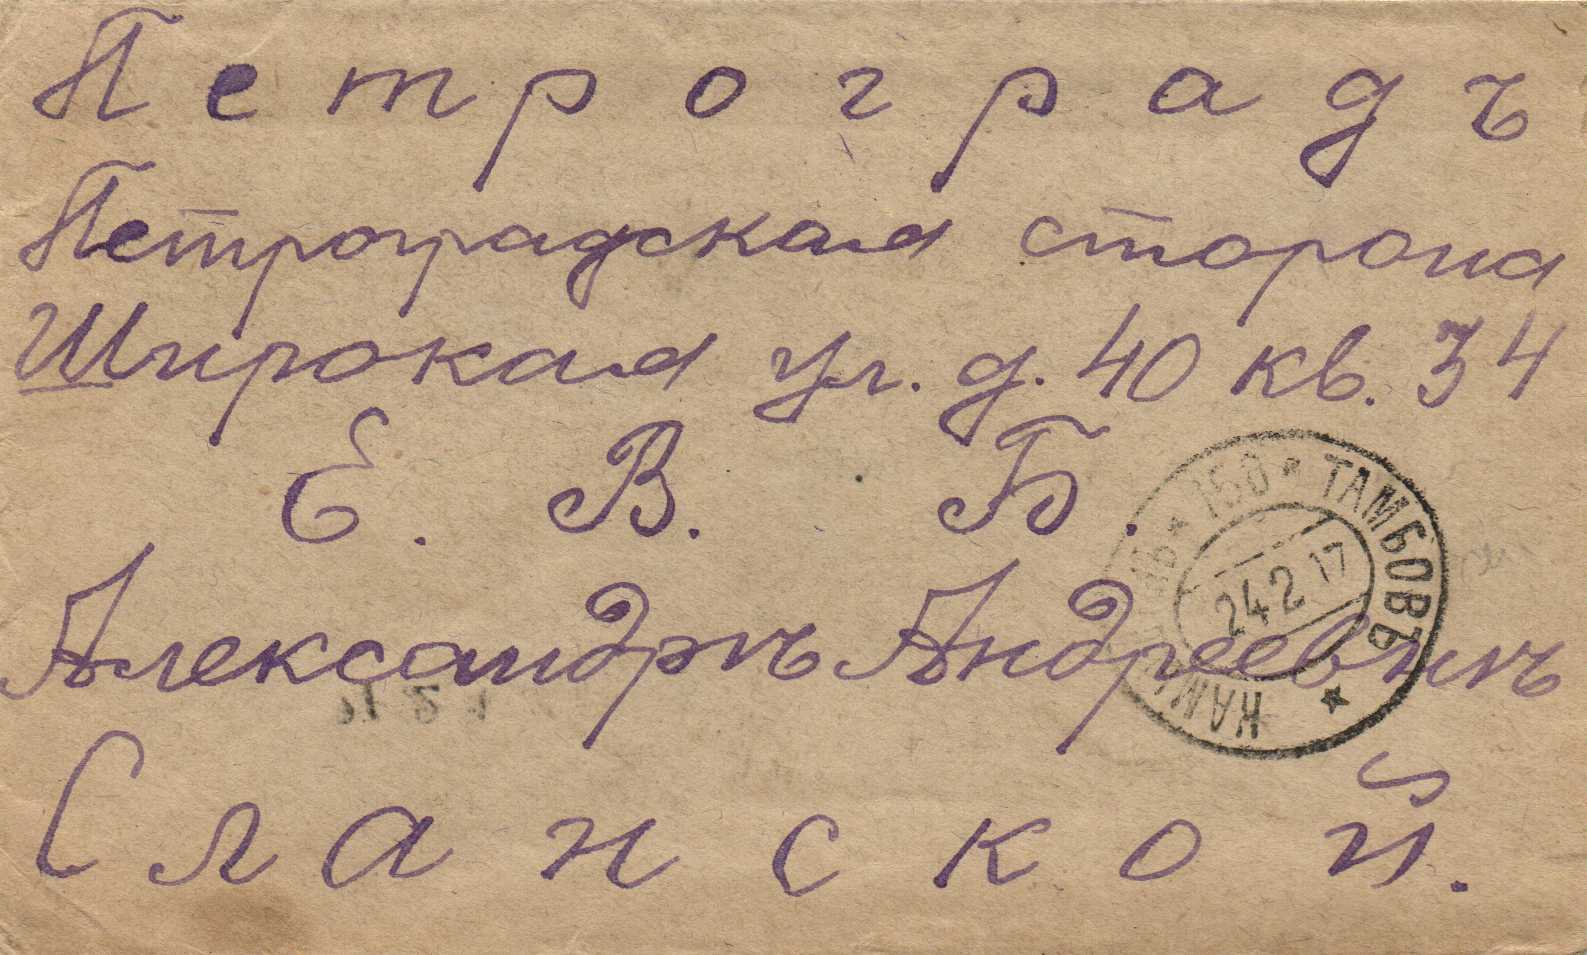 Петроградъ
Петроградская сторона
Широкая ул. д. 40 кв. 34
Е. В. Б.
Александръ Андреевнъ
Сланской.
ТАМБОВЪ
24 2 17
150